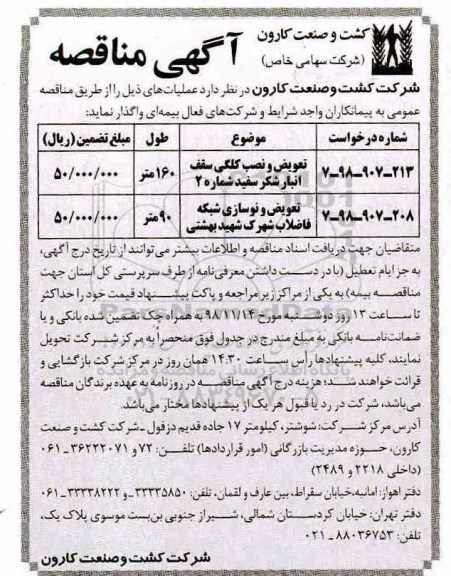 کشت و صنعت کارون
(شرکت سهامی خاص)
آگهی مناقصه
شرکت کشت و صنعت کارون در نظر دارد عملیات‌های ذیل را از طریق مناقصه
عمومی به پیمانکاران واجد شرایط و شرکت‌های فعال بیمه‌ای واگذار نماید:
شماره درخواست موضوع طول مبلغ تضمین (ریال)
۷-۹۸-۹۰۷-۲۱۳ تعویض و نصب کلگی سقف انبار شکر سفید شماره ۲ ۱۶۰ متر ۵۰/۰۰۰/۰۰۰
۷-۹۸-۹۰۷-۲۰۸ تعویض و نوسازی شبکه فاضلاب شهرک شهید بهشتی ۹۰ متر ۵۰/۰۰۰/۰۰۰
متقاضیان جهت دریافت اسناد مناقصه و اطلاعات بیشتر می‌توانند از تاریخ درج آگهی،
به جز ایام تعطیل (با در دست داشتن معرفی‌نامه از طرف سرپرستی کل استان جهت
مناقصه بیمه) به یکی از مراکز زیر مراجعه و پاکت پیشنهاد قیمت خود را حداکثر
تا ساعت ۱۳ روز دوشنبه مورخ ۹۸/۱۱/۱۴ به همراه چک تضمین شده بانکی و یا
ضمانت‌نامه بانکی به مبلغ مندرج در جدول فوق منحصراً به مرکز شرکت تحویل
نمایند، کلیه پیشنهادها رأس ساعت ۱۴:۳۰ همان روز در مرکز شرکت بازگشایی و
قرائت خواهند شد؛ هزینه درج آگهی مناقصه در روزنامه به عهده برندگان مناقصه
می‌باشد، شرکت در رد یا قبول هر یک از پیشنهادها مختار می‌باشد.
آدرس مرکز شرکت: شوشتر، کیلومتر ۱۷ جاده قدیم دزفول - شرکت کشت و صنعت
کارون، حوزه مدیریت بازرگانی (امور قراردادها) تلفن: ۷۲ و ۳۶۲۲۲۰۷۱-۰۶۱
(داخلی ۲۲۱۸ و ۲۴۸۹)
دفتر اهواز: امانیه، خیابان سقراط، بین عارف و لقمان، تلفن: ۳۳۳۳۵۸۵۰ و ۳۳۳۳۸۲۲۲-۰۶۱
دفتر تهران: خیابان کردستان شمالی، شیراز جنوبی بن‌بست موسوی پلاک یک،
تلفن: ۸۸۰۳۶۷۵۳-۰۲۱
شرکت کشت و صنعت کارون